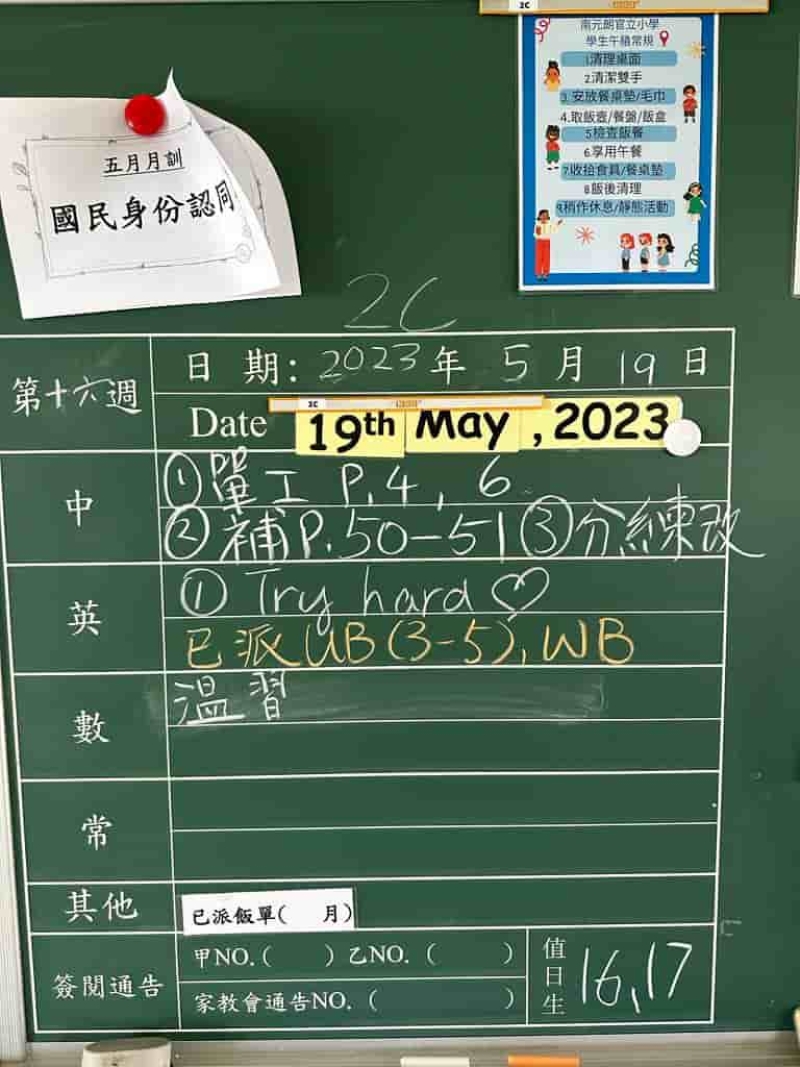 2C
南元朗官立小學
學生午膳常規
1.清理桌面
2.清潔雙手
3.安放餐桌墊/毛巾
4.取飯壺/餐盤/飯盒
5.檢查飯餐
6.享用午餐
7.收拾食具/餐桌墊
8.飯後清理
9.稍作休息/靜態活動
五月月訓
國民身份認同
2C
第十六週
日 期: 2023年 5 月 19 日
Date 19th May , 2023
2C
中
①單工 P.4 , 6
②補P.50-51 ③分練改
英
① Try hard ♡
已派UB(3-5), WB
數
溫習
常
其他
已派飯單( 月)
簽閱通告
甲NO.( ) 乙NO. ( )
家教會通告NO. ( )
值日生
16,17